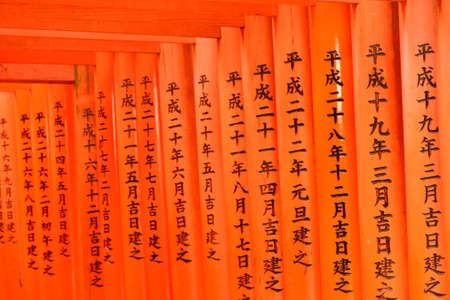 平成十九年三月吉日建之
平成十九年三月吉日建之
平成二十八年十二月吉日建之
平成二十二年元旦建之
平成二十一年四月吉日建之
平成二十一年八月十七日建之
平成二十年五月吉日建之
平成二十年六月吉日建之
平成二十七年七月吉日建之
平成二十一年五月吉日建之
平成二十七年二月吉日建之
平成十六年十二月吉日建之
平成二十四年五月吉日建之
平成二十二年二月初午建之
平成二十六年八月吉日建之
平成十六年九月吉日建之